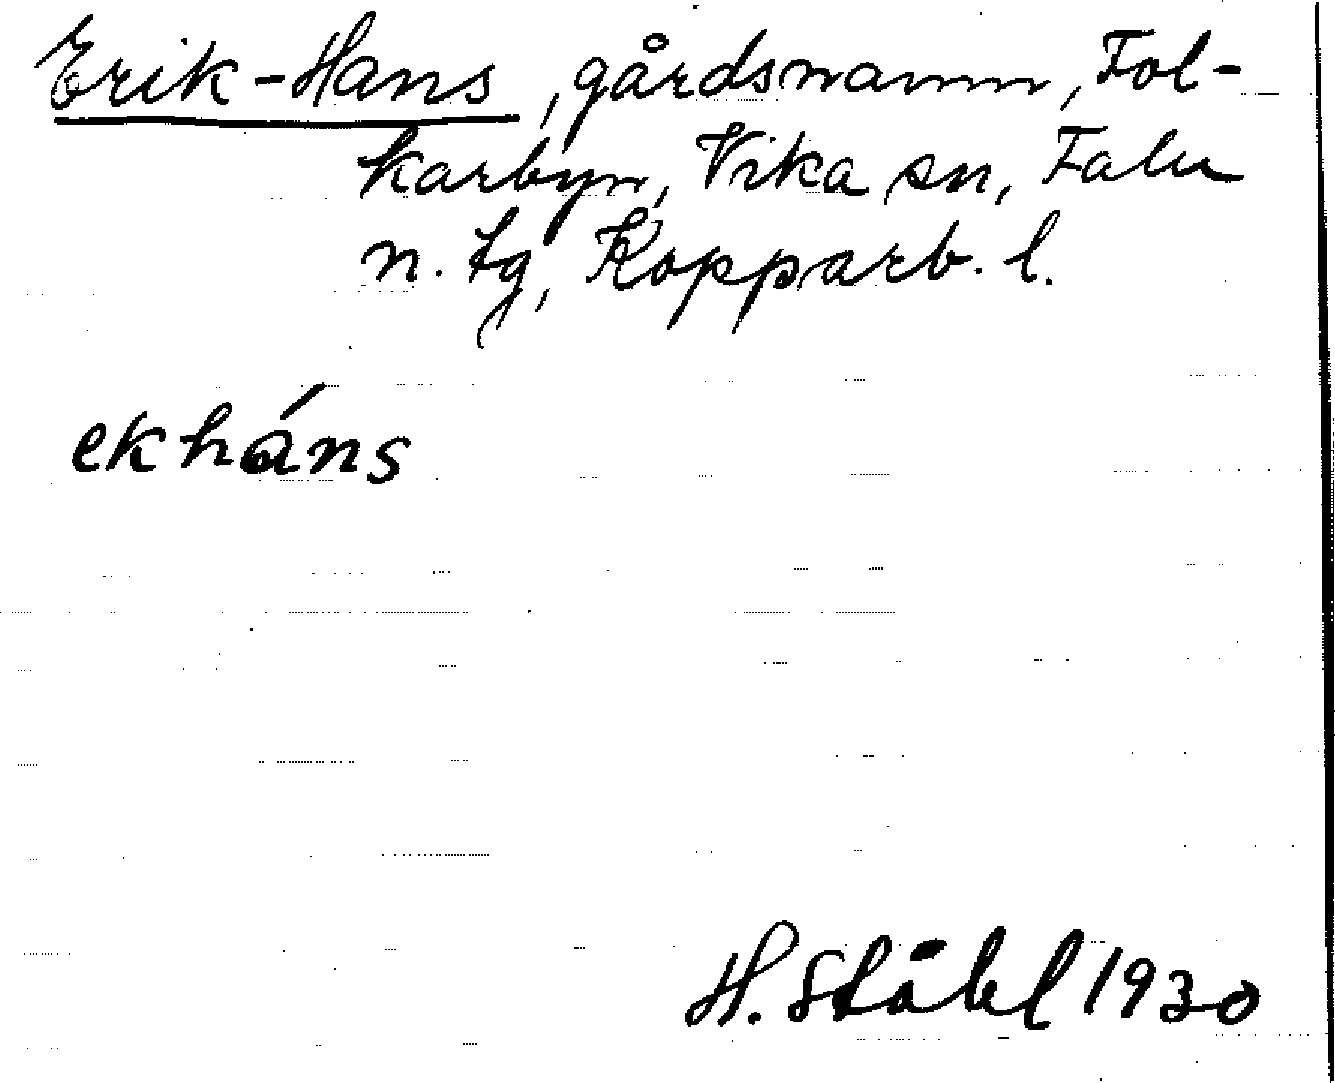 Erik-Hans, gårdsnamn, Fol-
karbyn, Vika sn, Falu
n. tg, Kopparb. l.
ekháns
H. Ståhl 1930